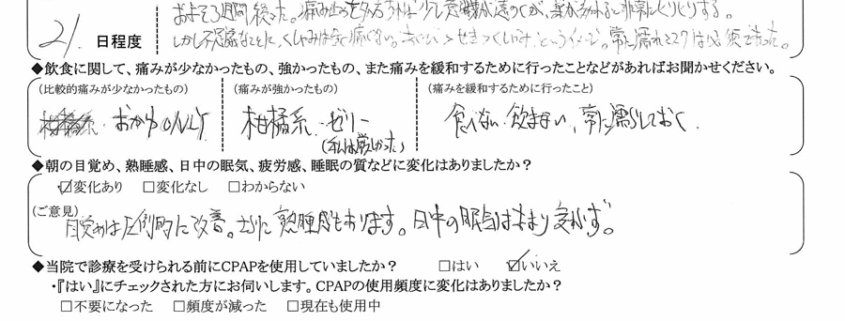 およそ3週間後まで。痛み止めを
21. 日程度
しかし不思議なことに、くしゃみは全く痛くない。
◆飲食に関して、痛みが少なかったもの、強かったもの、また痛みを緩和するために行ったことなどがあればお聞かせください。
(比較的痛みが少なかったもの) (痛みが強かったもの) (痛みを緩和するために行ったこと)
おかゆONLY 柑橘系・ゼリー 食べない・飲まない、常に濡らしておく
(私は厳しかった)
◆朝の目覚め、熟睡感、日中の眠気、疲労感、睡眠の質などに変化はありましたか?
☑変化あり □変化なし □わからない
(ご意見)
目覚めは圧倒的に改善。さらに熟睡感もあります。日中の眠気はあまり変わらず。
◆当院で診療を受けられる前にCPAPを使用していましたか? □はい ☑いいえ
・『はい』にチェックされた方にお伺いします。CPAPの使用頻度に変化はありましたか?
□不要になった □頻度が減った □現在も使用中